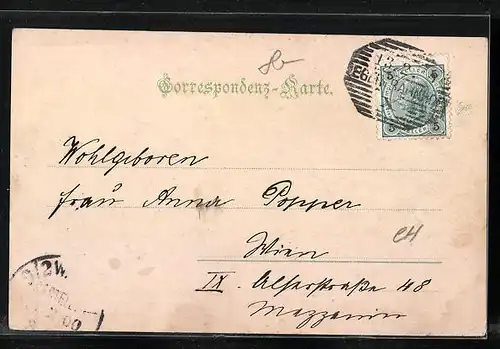 Correspondenz-Karte.
Wohlgeboren
Frau Anna Popper
Wien
IX. Alserstraße 48
Mezzanin
9/2 W.
5
5